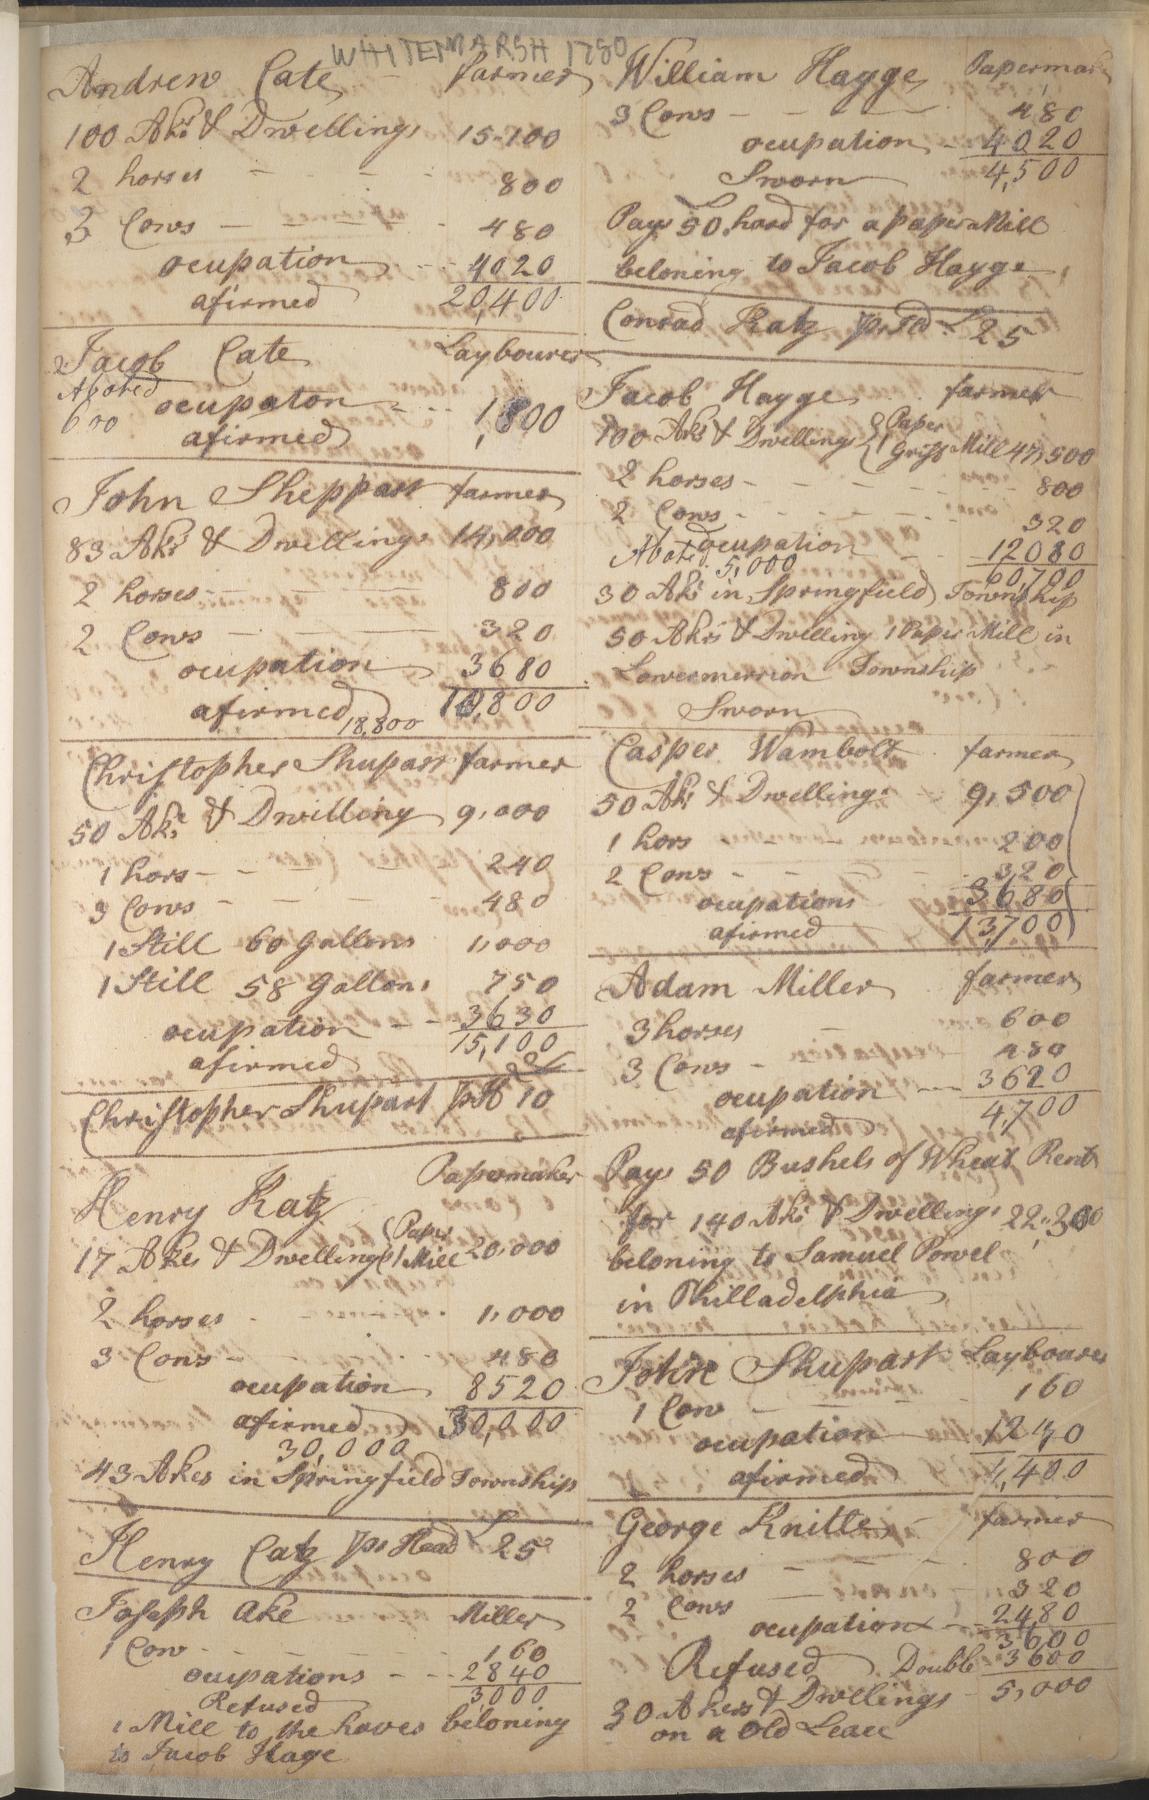 WHITEMARSH 1780
Andrew Cate farmer
100 Akrs & Dwellings 15-100
2 horses 800
3 Cows 480
ocupation 4020
afirmed 20,400
Jacob Cate Laybourer
Abated
600
ocupaton 1,800
afirmed
John Sheppart farmer
83 Akrs & Dwellings 14,000
2 horses 800
2 Cows 320
ocupation 3680
afirmed 18,800
Christopher Shupart farmer
50 Akrs & Dwilling 9,000
1 hors 240
3 Cows 480
1 Still 60 Gallons 1,000
1 Still 58 Gallons 750
ocupation 3630
afirmed 15,100
Christopher Shupart pr H 10
Henry Katz Papermaker
17 Akes & Dwelling 1 Paper Mill 20,000
2 horses 1,000
3 Cows 480
ocupation 8520
afirmed 30,000
30,000
43 Akes in Springfield Township
Henry Catz pr Head £ 25
Joseph Ake Miller
1 Cow 160
ocupations 2840
Refused 3000
1 Mill to the haves beloning
to Jacob Hage
William Hagge Papermak
3 Cows 480
ocupation 4020
Sworn 4,500
Pays 50 hard for a paper Mill
beloning to Jacob Hagge
Conrad Katz pr Hd £ 25
Jacob Hagge farmer
100 Akrs & Dwellings 1 Paper
1 Grist Mill 47,500
2 horses 800
2 Cows 320
ocupation 12080
Abated 5,000 60,700
30 Akrs in Springfield Township
50 Akrs & Dwelling 1 Paper Mill in
Lowermerrion Township
Sworn
Casper Wambolt farmer
50 Akrs & Dwellings 9,500
1 hors 200
2 Cows 320
ocupations 3680
afirmed 13,700
Adam Miller farmer
3 horses 600
3 Cows 480
ocupation 3620
afirmed 4,700
Pays 50 Bushels of Wheat Rent
for 140 Akrs & Dwellings 22,300
beloning to Samuel Powel
in Philladelphia
John Shupart Laybourer
1 Cow 160
ocupation 1240
afirmed 1,400
George Knittle farmer
2 horses 800
2 Cows 320
ocupation 2480
3600
Refused Double 3600
30 Akers & Dwellings 5,000
on a Old Leace